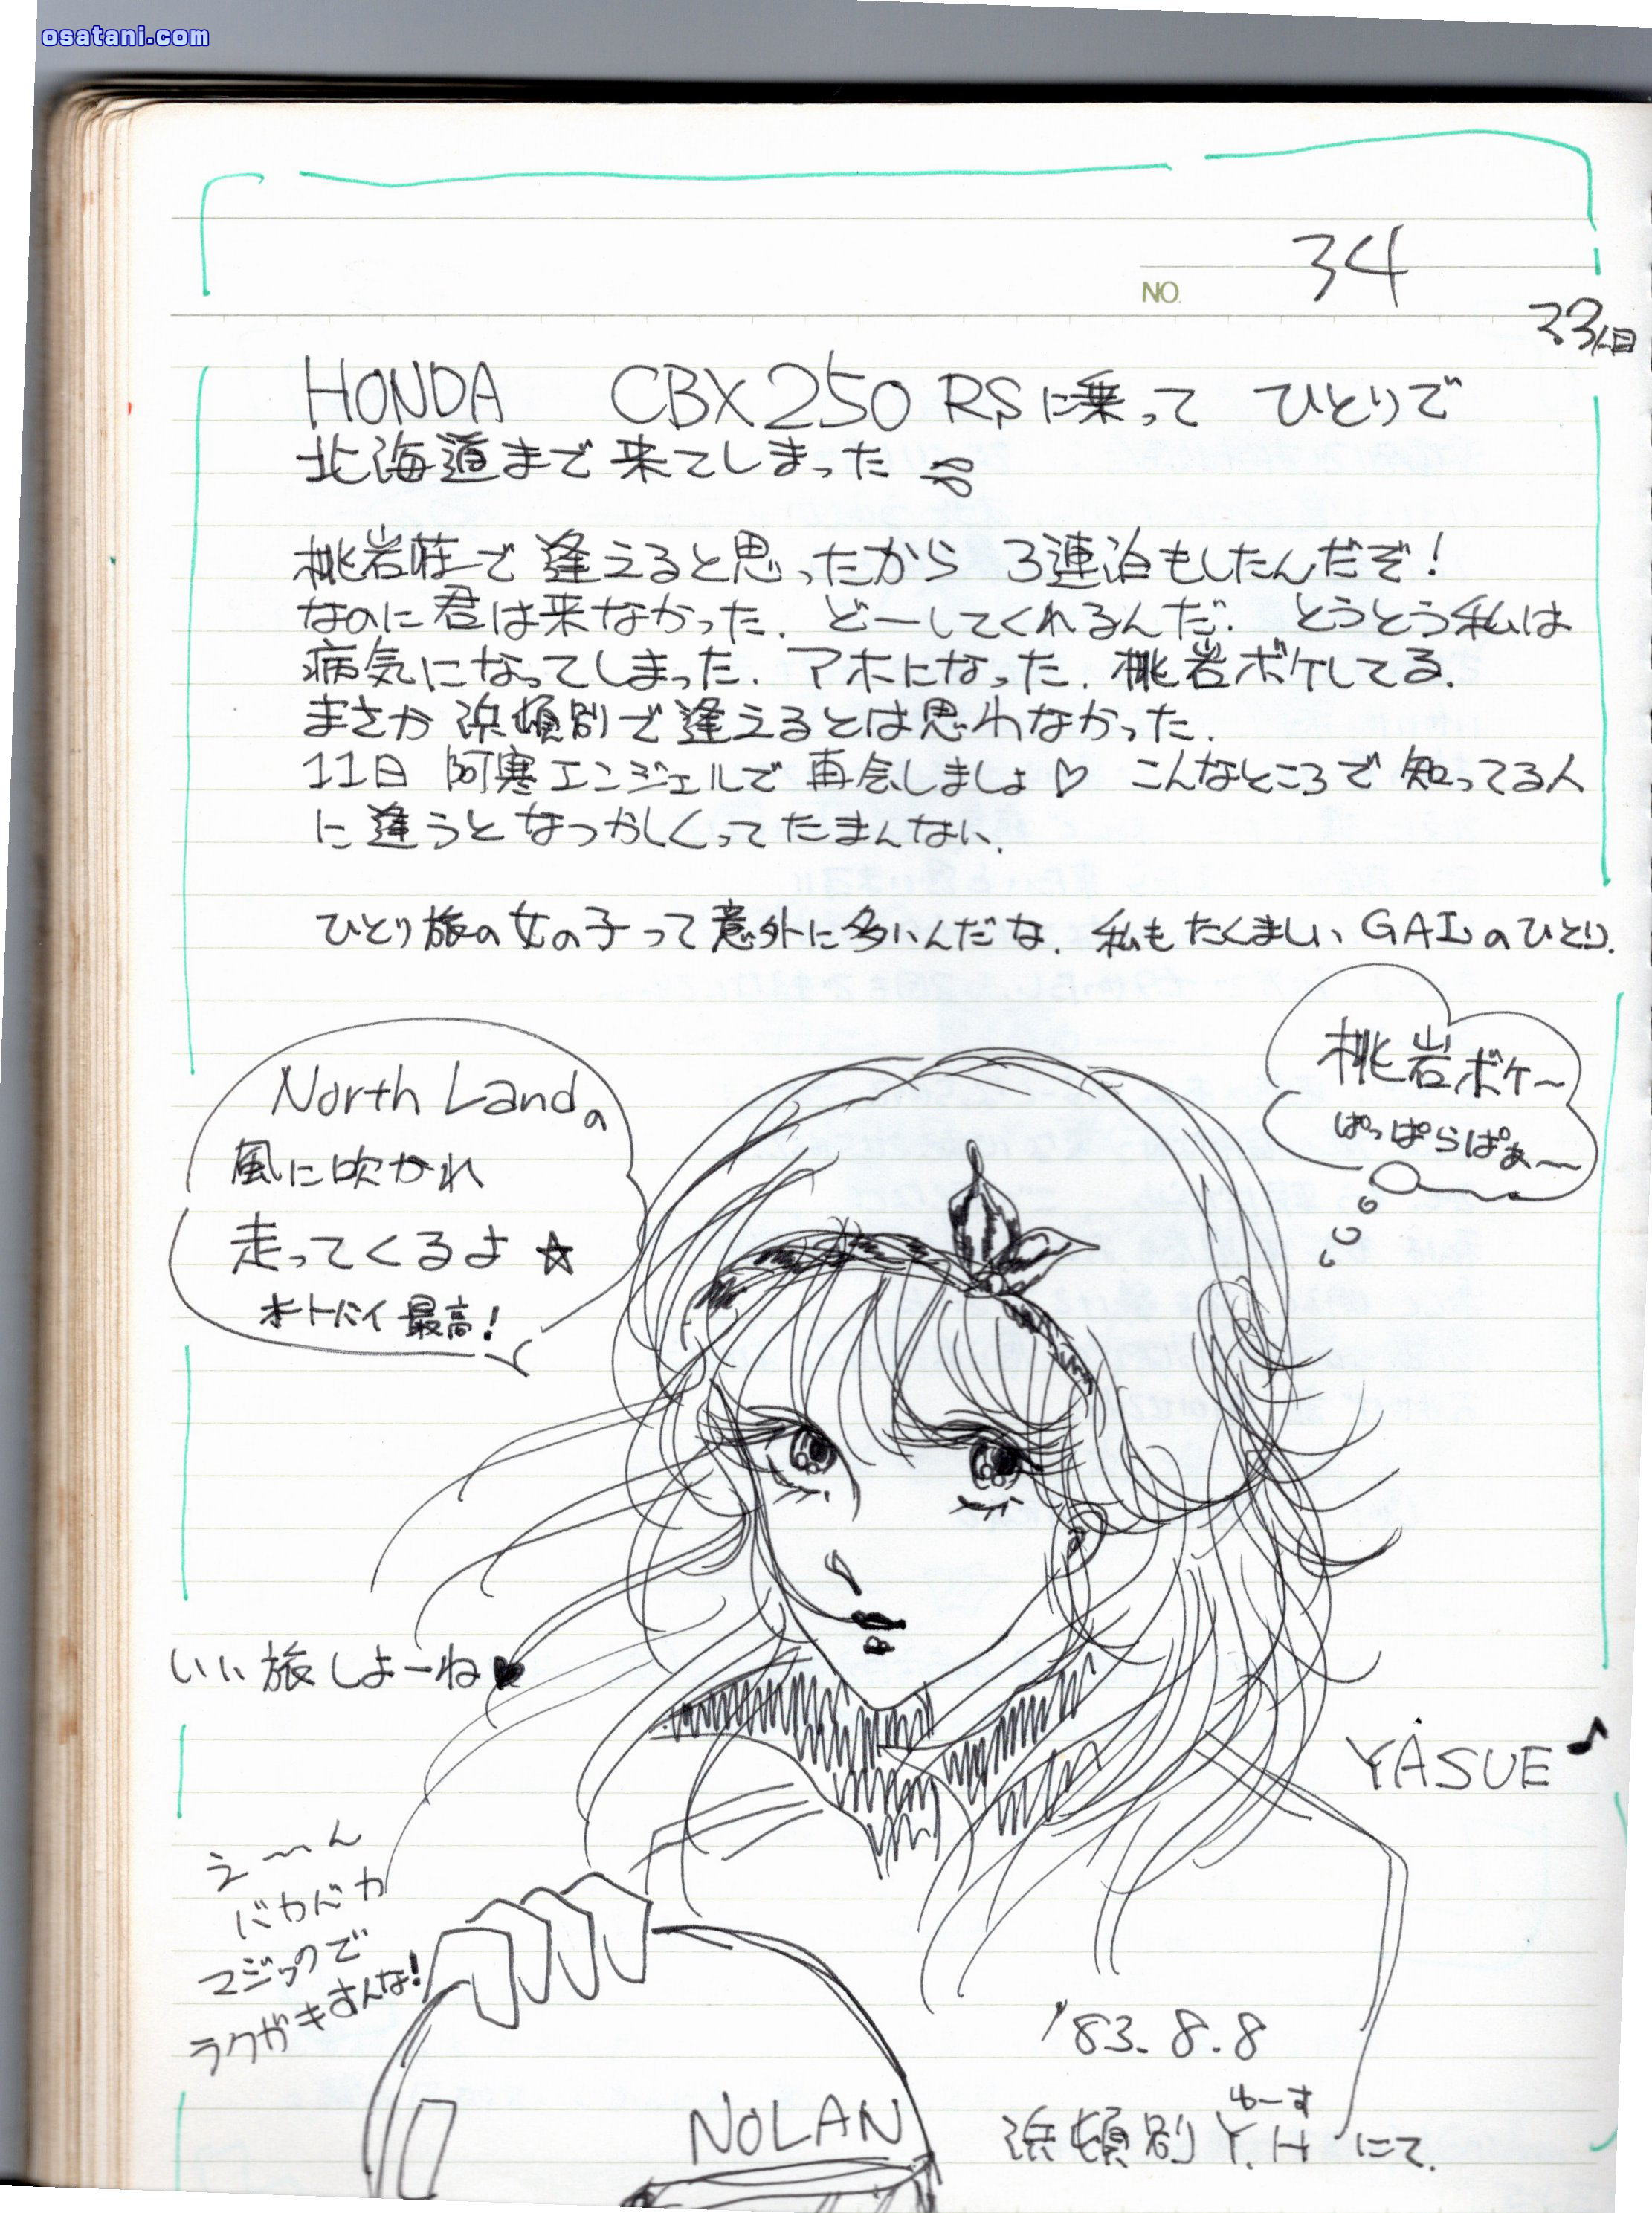 osatani.com
34
NO.
33人目
HONDA CBX250RSに乗って ひとりで
北海道まで来てしまった
桃岩荘で逢えると思ったから 3連泊もしたんだぞ!
なのに君は来なかった. どーしてくれるんだ. とうとう私は
病気になってしまった. アホになった. 桃岩ボケしてる.
まさか浜頓別で逢えるとは思わなかった.
11日 阿寒エンジェルで再会しましょ♡ こんなところで知ってる人
に逢うとなつかしくってたまんない.
ひとり旅の女の子って意外に多いんだな. 私もたくましいGALのひとり.
North Landの
風に吹かれ
走ってくるよ☆
オートバイ最高!
桃岩ボケ〜
ぱっぱらぱぁ〜
いい旅しよーね♥
YASUE♪
え〜〜ん
バカバカ
マジックで
ラクガキすんな!
NOLAN
'83.8.8
ゆーす
浜頓別Y.H にて.